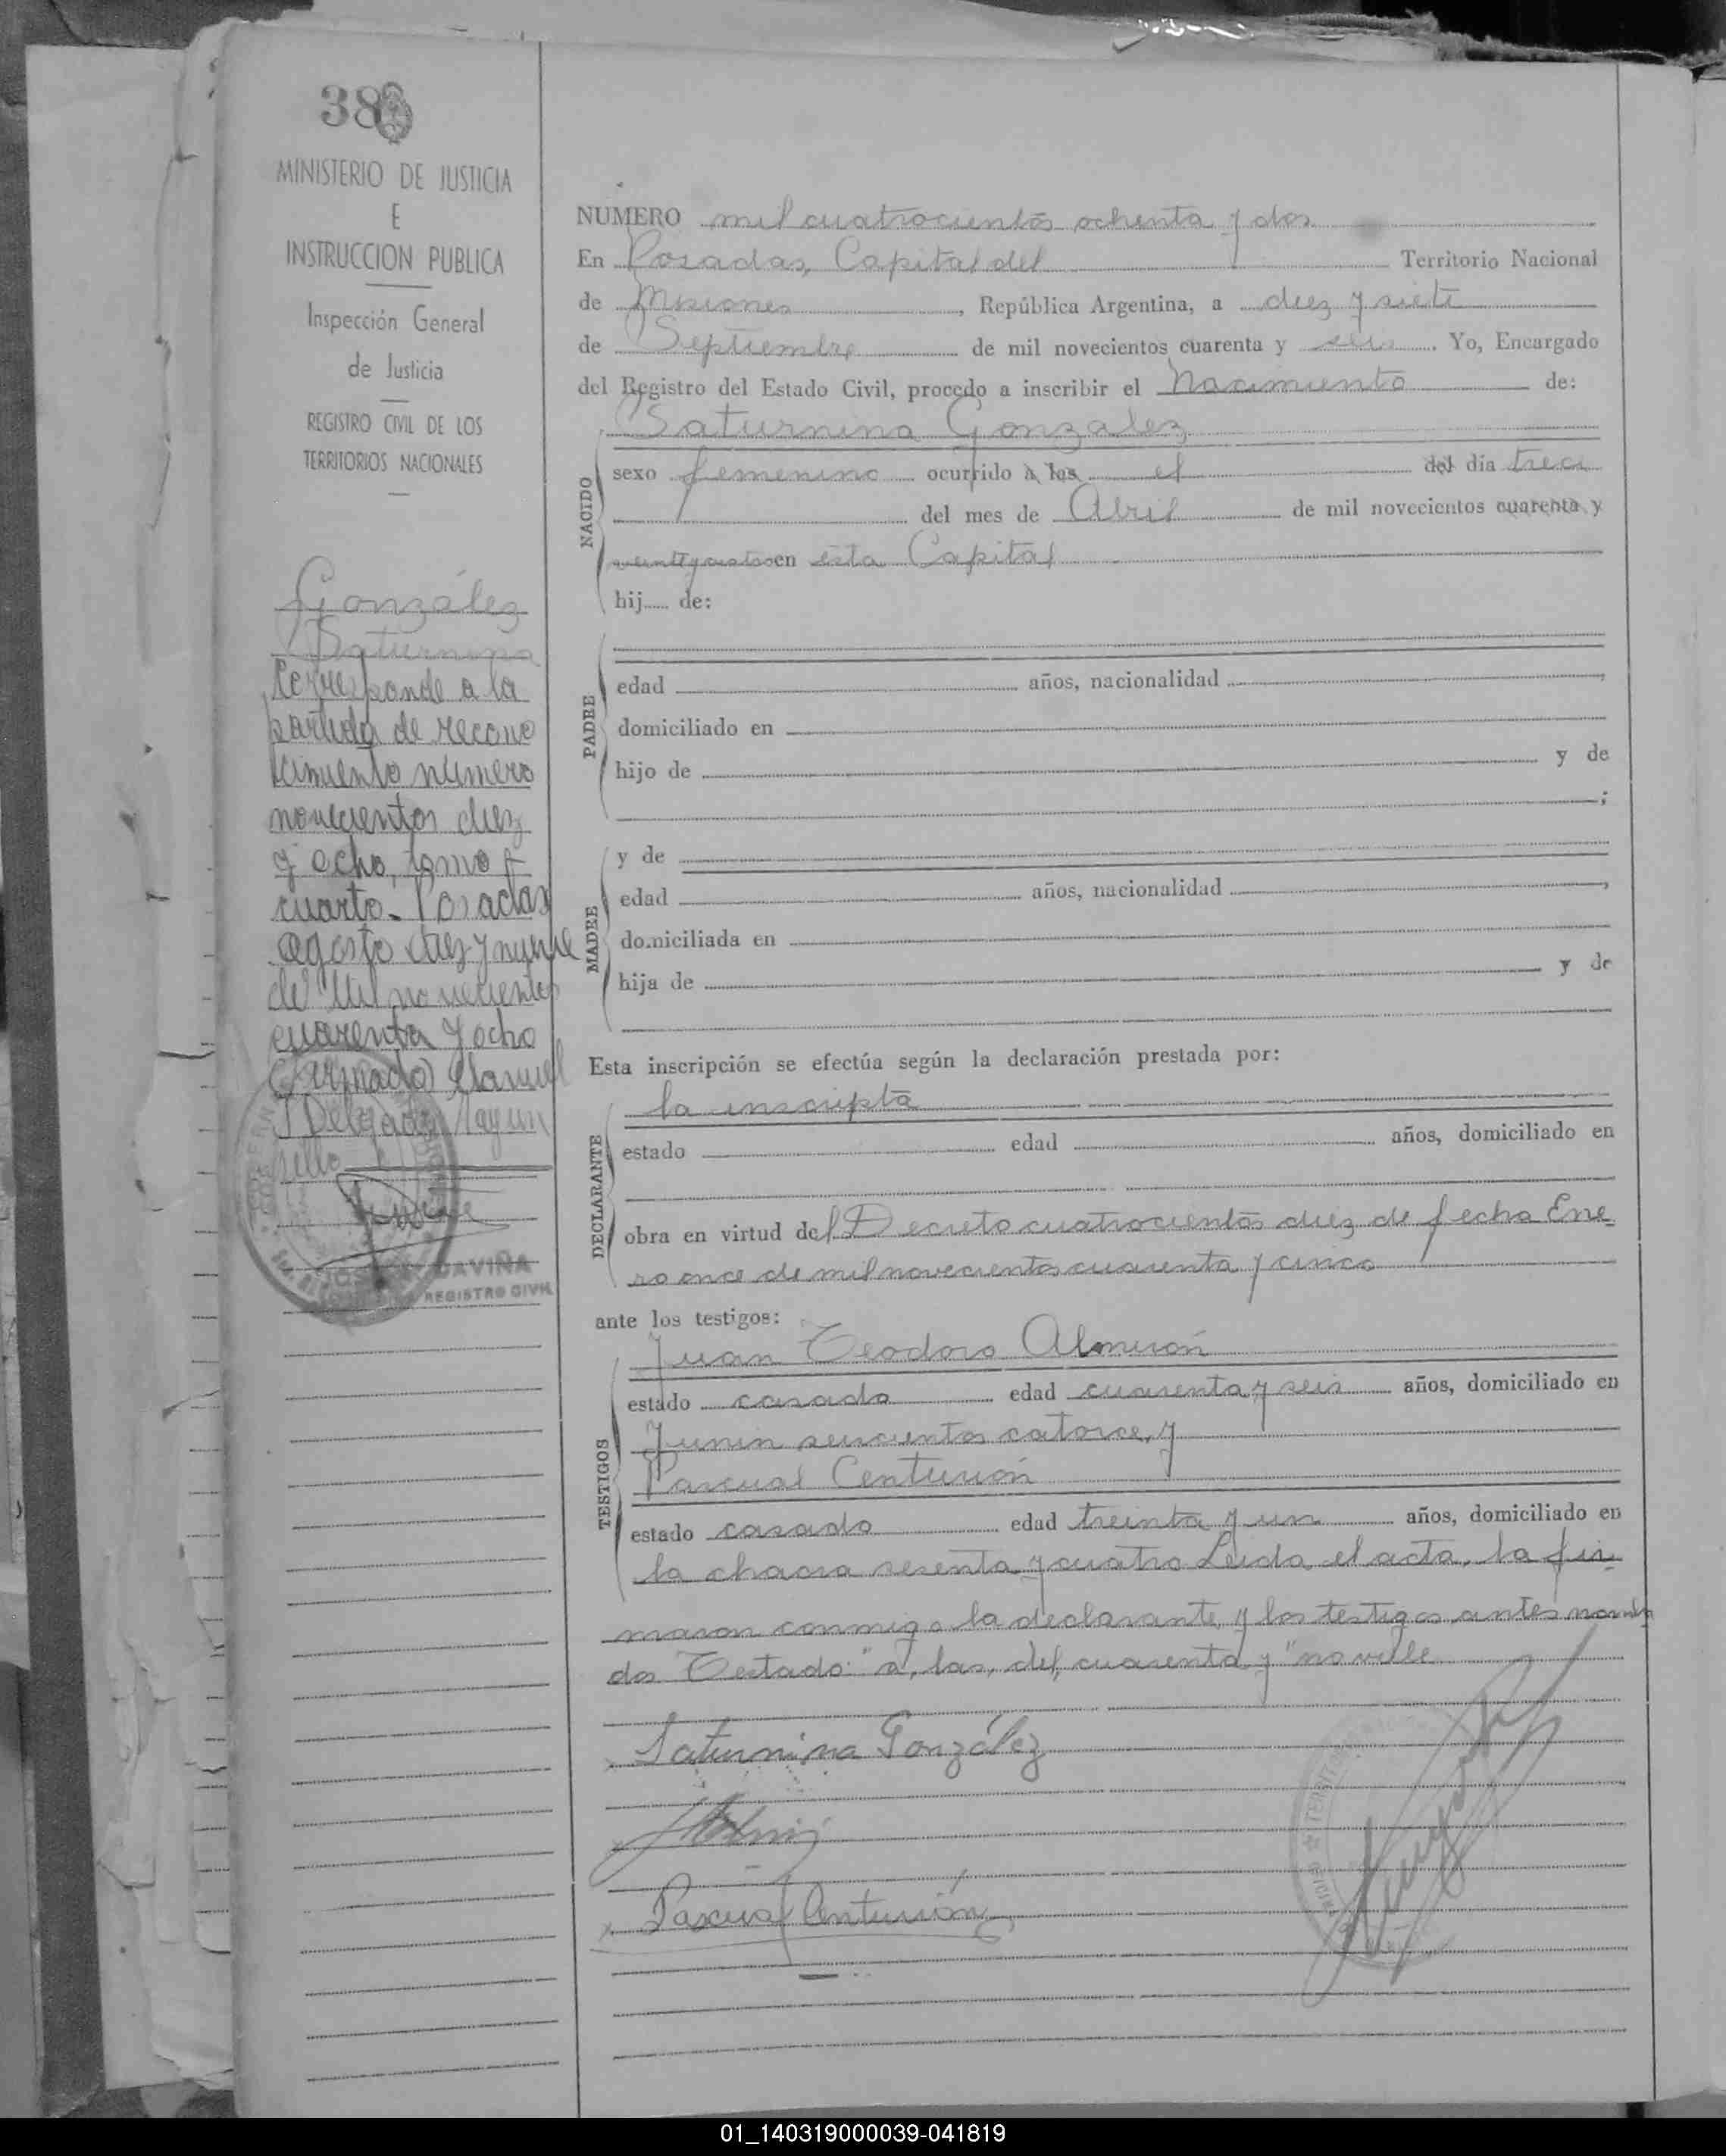 38
MINISTERIO DE JUSTICIA
E
INSTRUCCION PUBLICA
Inspección General
de Justicia
REGISTRO CIVIL DE LOS
TERRITORIOS NACIONALES
González
Saturnina
Corresponde a la
partida de recono
cimiento número
novecientos diez
y ocho, tomo
cuarto. Posadas
agosto diez y nueve
de Mil novecientos
cuarenta y ocho
Firmado Manuel
J Delgado
sello
GAVIÑA
REGISTRO CIVIL
NUMERO mil cuatrocientos ochenta y dos
En Posadas, Capital del Territorio Nacional
de Misiones, República Argentina, a diez y siete
de Septiembre de mil novecientos cuarenta y seis. Yo, Encargado
del Registro del Estado Civil, procedo a inscribir el Nacimiento de:
Saturnina Gonzalez
NACIDO
sexo femenino ocurrido a las el del día trece
del mes de Abril de mil novecientos cuarenta y
veinte y cuatro en esta Capital
hij de:
PADRE
edad años, nacionalidad ,
domiciliado en
hijo de y de
;
MADRE
y de
edad años, nacionalidad ,
domiciliada en
hija de y de
Esta inscripción se efectúa según la declaración prestada por:
DECLARANTE
la inscripta
estado edad años, domiciliado en
obra en virtud del Decreto cuatrocientos diez de fecha Ene
ro once de mil novecientos cuarenta y cinco
ante los testigos:
TESTIGOS
Juan Teodoro Almirón
estado casado edad cuarenta y seis años, domiciliado en
Junin seiscientos catorce, y
Pascual Centurión
estado casado edad treinta y un años, domiciliado en
la chacra sesenta y cuatro Leida el acta, la fir
maron conmigo la declarante y los testigos antes nombra
dos Testado: "a, las, del, cuarenta y" no vale
Saturnina González
Pascual Centurión
01_140319000039-041819